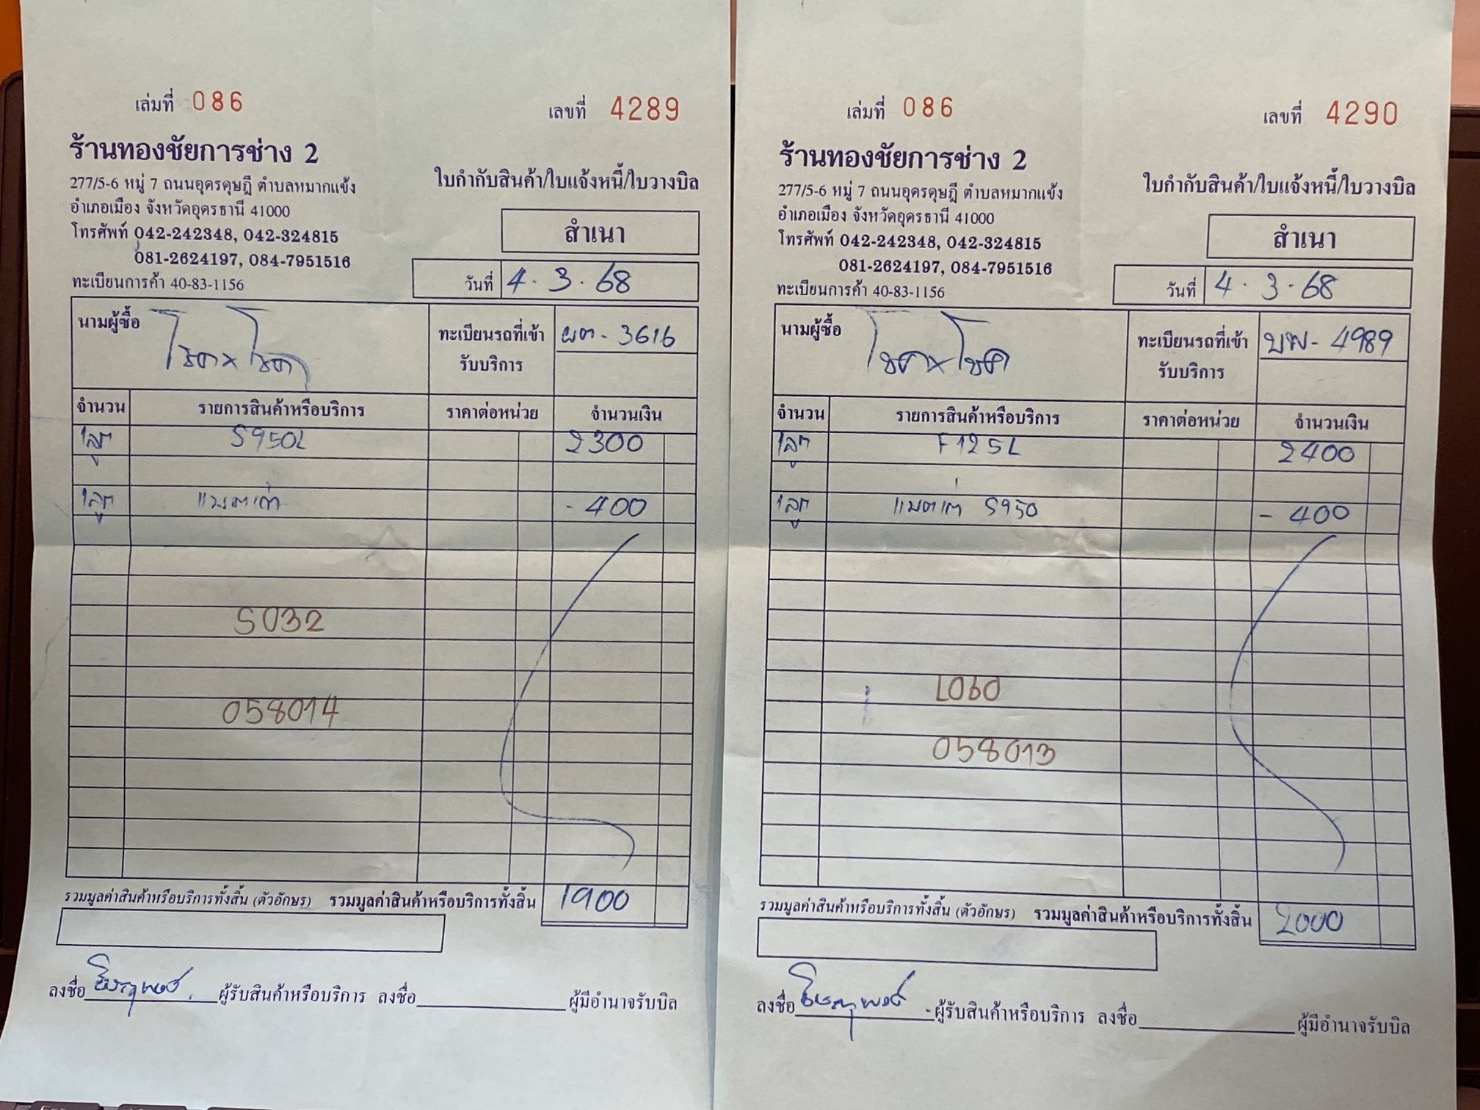 เล่มที่ 086
เลขที่ 4289
ร้านทองชัยการช่าง 2
277/5-6 หมู่ 7 ถนนอุดรดุษฎี ตำบลหมากแข้ง
อำเภอเมือง จังหวัดอุดรธานี 41000
โทรศัพท์ 042-242348, 042-324815
081-2624197, 084-7951516
ทะเบียนการค้า 40-83-1156
ใบกำกับสินค้า/ใบแจ้งหนี้/ใบวางบิล
สำเนา
วันที่ 4.3.68
นามผู้ซื้อ
ทะเบียนรถที่เข้า ผต-3616
รับบริการ
จำนวน รายการสินค้าหรือบริการ ราคาต่อหน่วย จำนวนเงิน
1ลูก S950L 2300
1ลูก แบตเก่า -400
S032
058014
รวมมูลค่าสินค้าหรือบริการทั้งสิ้น (ตัวอักษร) รวมมูลค่าสินค้าหรือบริการทั้งสิ้น 1900
ลงชื่อ ผู้รับสินค้าหรือบริการ ลงชื่อ ผู้มีอำนาจรับบิล
เล่มที่ 086
เลขที่ 4290
ร้านทองชัยการช่าง 2
277/5-6 หมู่ 7 ถนนอุดรดุษฎี ตำบลหมากแข้ง
อำเภอเมือง จังหวัดอุดรธานี 41000
โทรศัพท์ 042-242348, 042-324815
081-2624197, 084-7951516
ทะเบียนการค้า 40-83-1156
ใบกำกับสินค้า/ใบแจ้งหนี้/ใบวางบิล
สำเนา
วันที่ 4.3.68
นามผู้ซื้อ
ทะเบียนรถที่เข้า บพ-4989
รับบริการ
จำนวน รายการสินค้าหรือบริการ ราคาต่อหน่วย จำนวนเงิน
1ลูก F125L 2400
1ลูก แบตเก่า S950 -400
L060
058013
รวมมูลค่าสินค้าหรือบริการทั้งสิ้น (ตัวอักษร) รวมมูลค่าสินค้าหรือบริการทั้งสิ้น 2000
ลงชื่อ ผู้รับสินค้าหรือบริการ ลงชื่อ ผู้มีอำนาจรับบิล